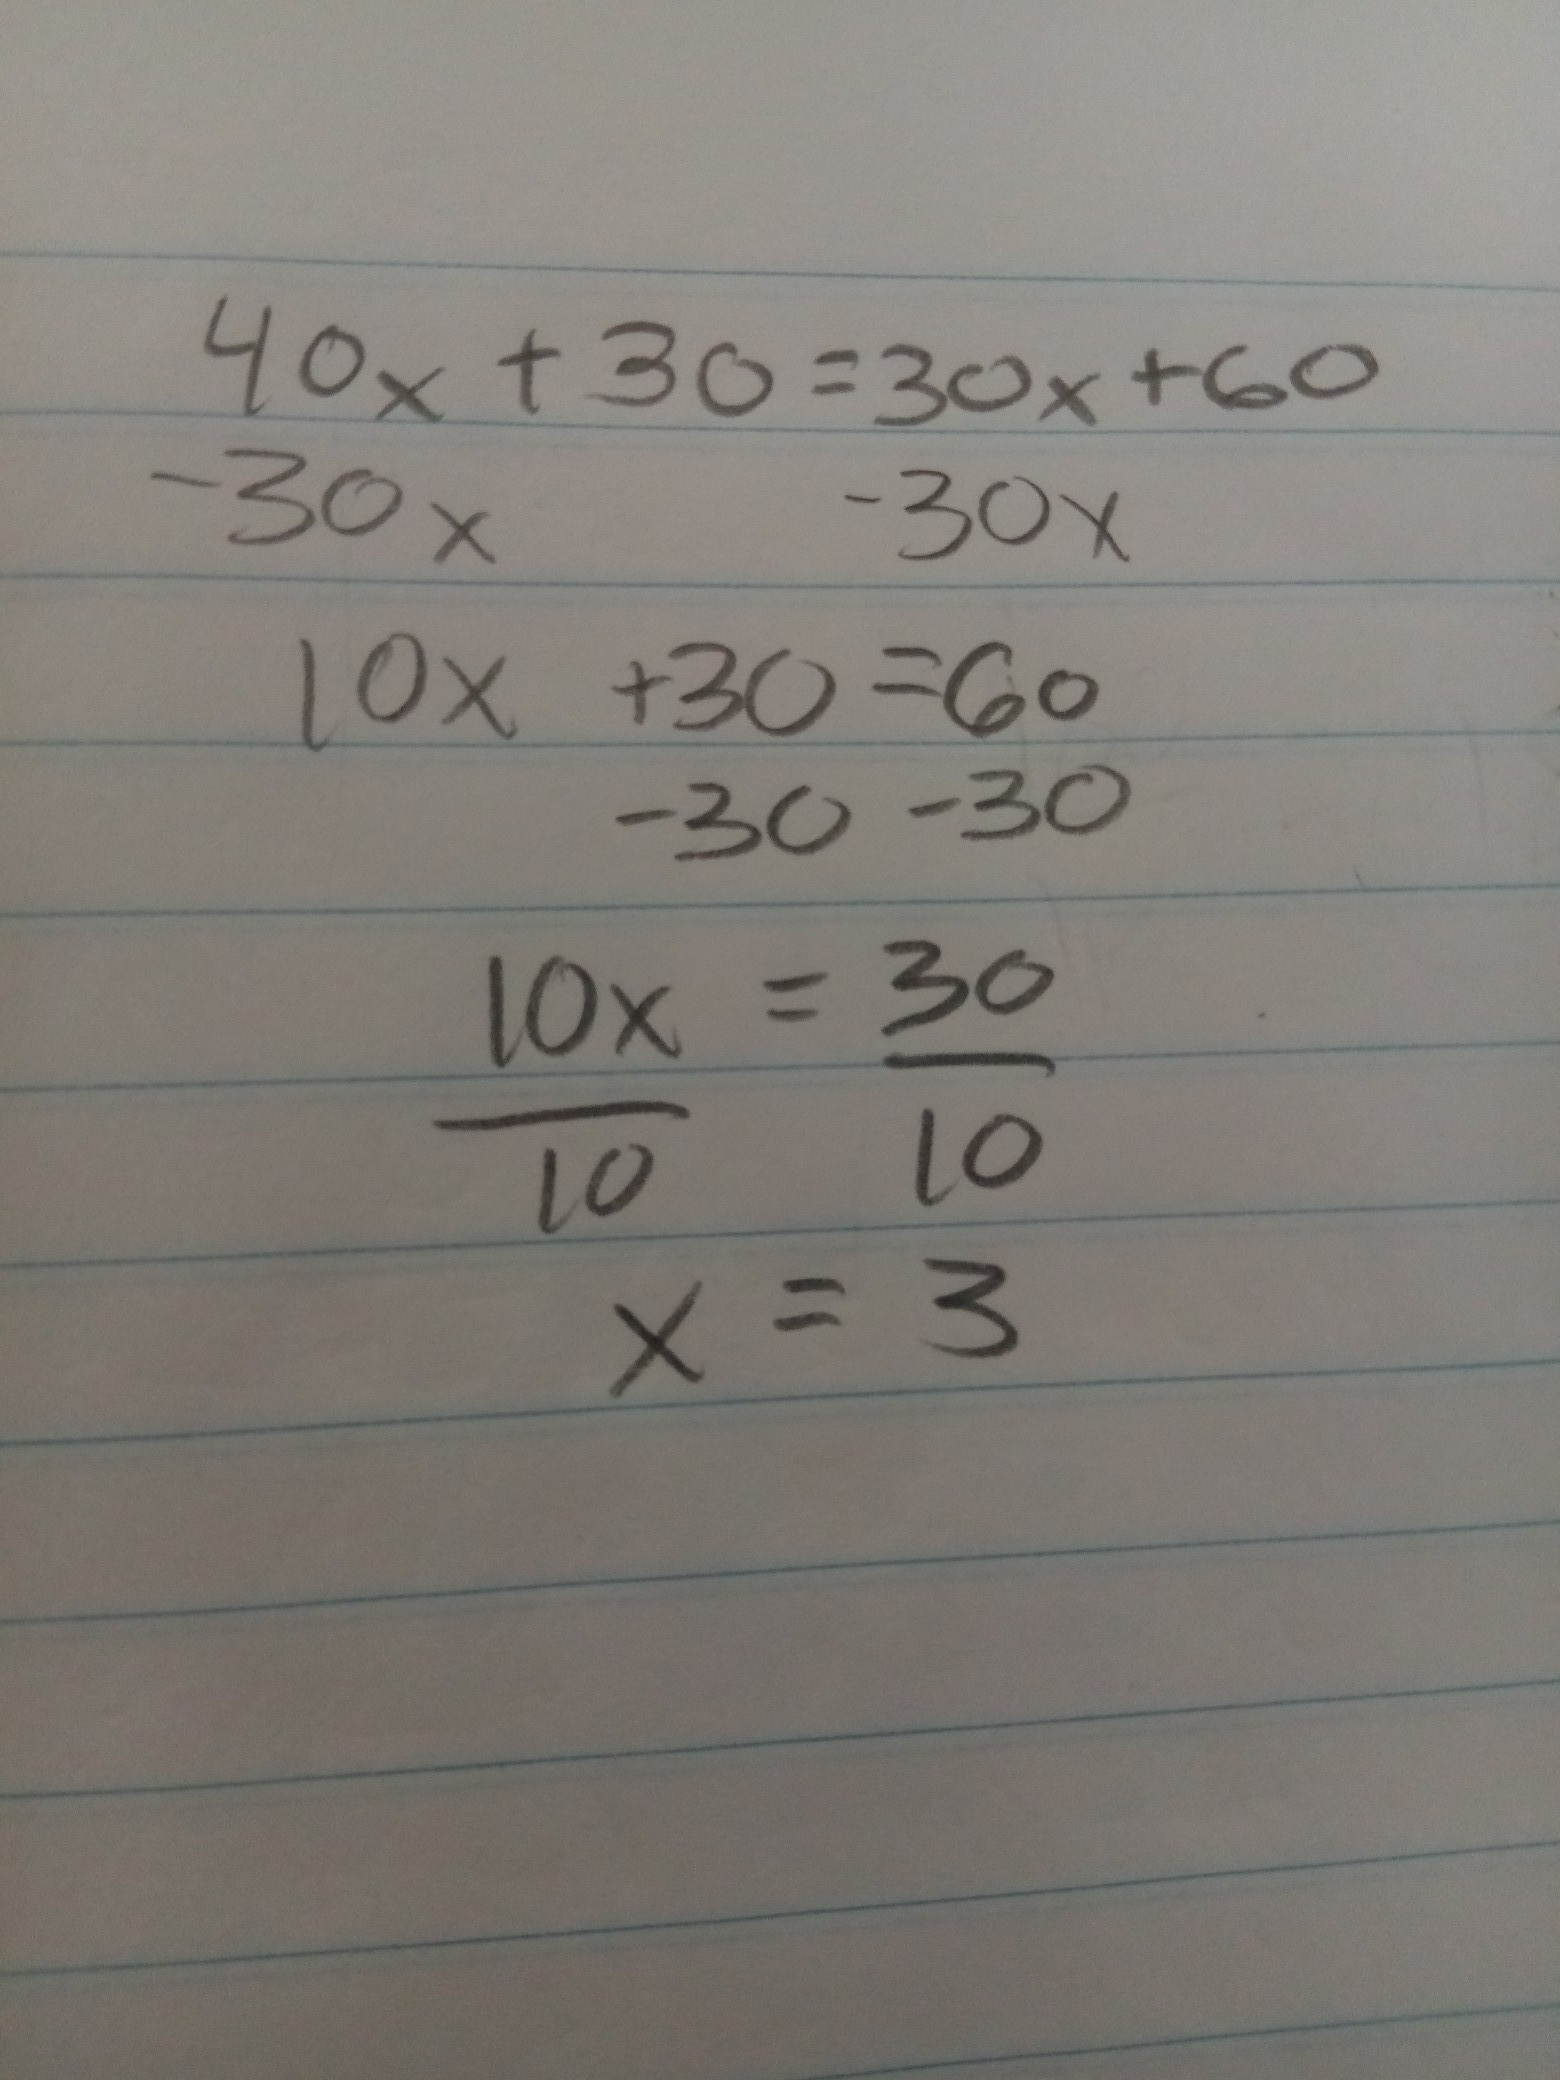 40x + 30 = 30x + 60
-30x -30x
10x +30 = 60
-30 -30
10x = 30
10 10
x = 3